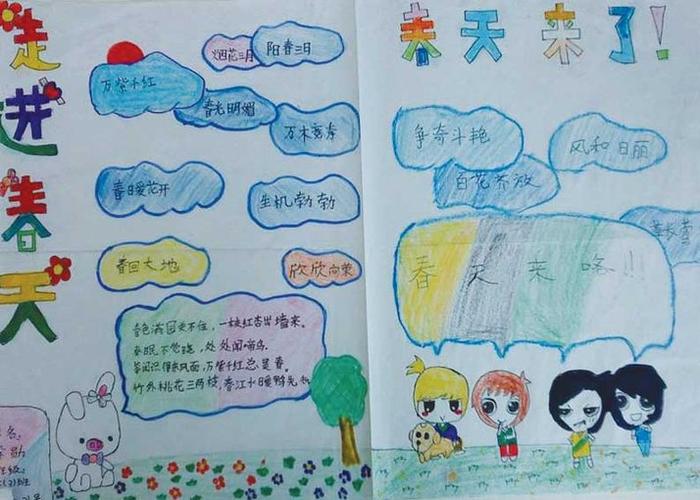 走进春天
烟花三月
阳春三日
万紫千红
春光明媚
万木
春日暖花开
生机勃勃
春回大地
欣欣向荣
春色满园关不住，一枝红杏出墙来。
春眠不觉晓，处处闻啼鸟。
等闲识得东风面，万紫千红总是春。
竹外桃花三两枝，春江水暖鸭先知
名
级
(2)班
春天来了!
争奇斗艳
风和日丽
百花齐放
莺
春天来咯!!!